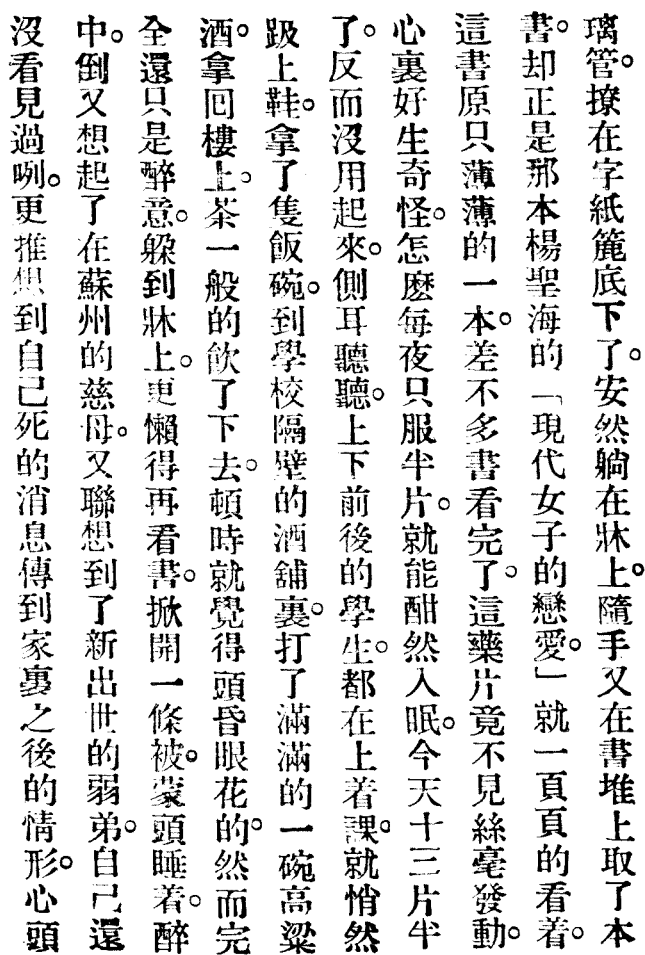 璃管。撩在字紙簏底下了。安然躺在牀上。隨手又在書堆上取了本
書。却正是那本楊聖海的「現代女子的戀愛。」就一頁頁的看着。
這書原只薄薄的一本。差不多書看完了。這藥片竟不見絲毫發動。
心裏好生奇怪。怎麽每夜只服半片。就能酣然入眠。今天十三片半
了。反而沒用起來。側耳聽聽。上下前後的學生。都在上着課。就悄然
趿上鞋。拿了隻飯碗。到學校隔壁的酒舖裏。打了滿滿的一碗高粱
酒。拿回樓上。茶一般的飲了下去。頓時就覺得頭昏眼花的。然而完
全還只是醉意。躱到牀上。更懶得再看書。掀開一條被。蒙頭睡着。醉
中。倒又想起了在蘇州的慈母。又聯想到了新出世的弱弟。自己還
沒看見過咧。更推想到自己死的消息傳到家裏之後的情形。心頭